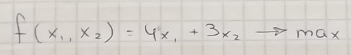 f(x₁, x₂) = 4x₁ + 3x₂ → max